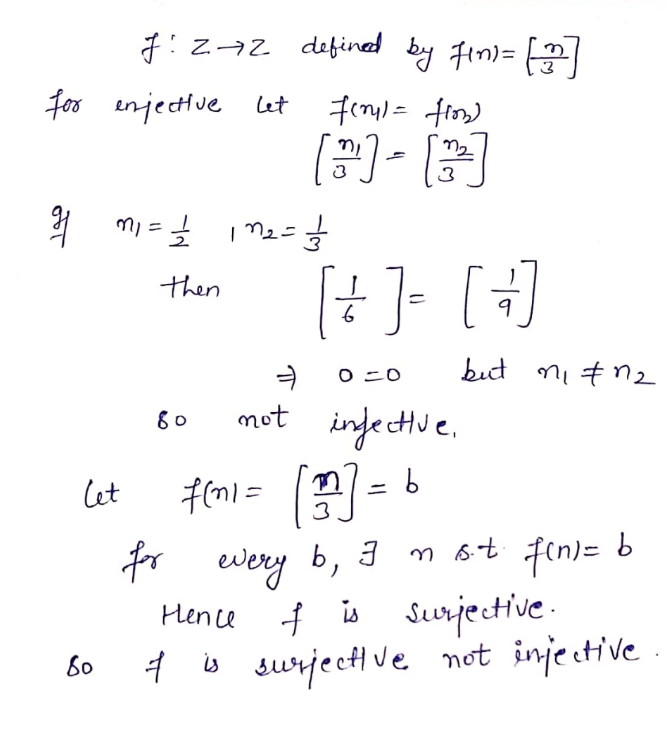 f : Z → Z defined by f(n) = [n/3]
for enjective let f(n₁) = f(n₂)
[n₁/3] = [n₂/3]
If n₁ = 1/2 , n₂ = 1/3
then [1/6] = [1/9]
⇒ 0 = 0 but n₁ ≠ n₂
so not injective.
let f(n) = [n/3] = b
for every b, ∃ n s.t. f(n) = b
Hence f is surjective.
so f is surjective not injective.